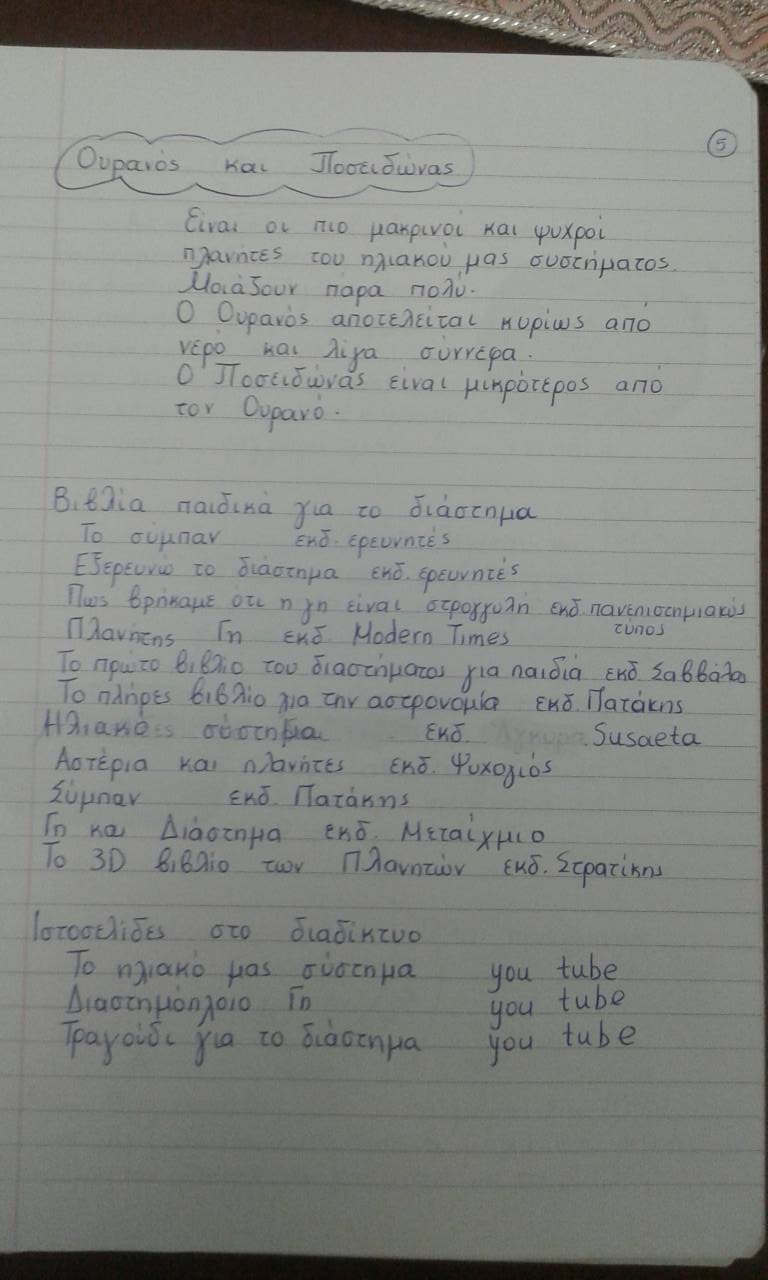 5
Ουρανός και Ποσειδώνας
Είναι οι πιο μακρινοί και ψυχροί
πλανήτες του ηλιακού μας συστήματος.
Μοιάζουν πάρα πολύ.
Ο Ουρανός αποτελείται κυρίως από
νερό και λίγα σύννεφα.
Ο Ποσειδώνας είναι μικρότερος από
τον Ουρανό.
Βιβλία παιδικά για το διάστημα
Το σύμπαν εκδ. ερευνητές
Εξερευνώ το διάστημα εκδ. ερευνητές
Πως βρήκαμε ότι η γη είναι στρογγυλή εκδ. πανεπιστημιακός
τύπος
Πλανήτης Γη εκδ Modern Times
Το πρώτο βιβλίο του διαστήματος για παιδιά εκδ Σαββάλας
Το πλήρες βιβλίο για την αστρονομία εκδ. Πατάκης
Ηλιακό σύστημα εκδ. Susaeta
Αστέρια και πλανήτες εκδ. Ψυχογιός
Σύμπαν εκδ. Πατάκης
Γη κα Διάστημα εκδ. Μεταίχμιο
Το 3D βιβλίο των Πλανητών εκδ. Στρατίκης
Ιστοσελίδες στο διαδίκτυο
Το ηλιακό μας σύστημα you tube
Διαστημόπλοιο Γη you tube
Τραγούδι για το διάστημα you tube